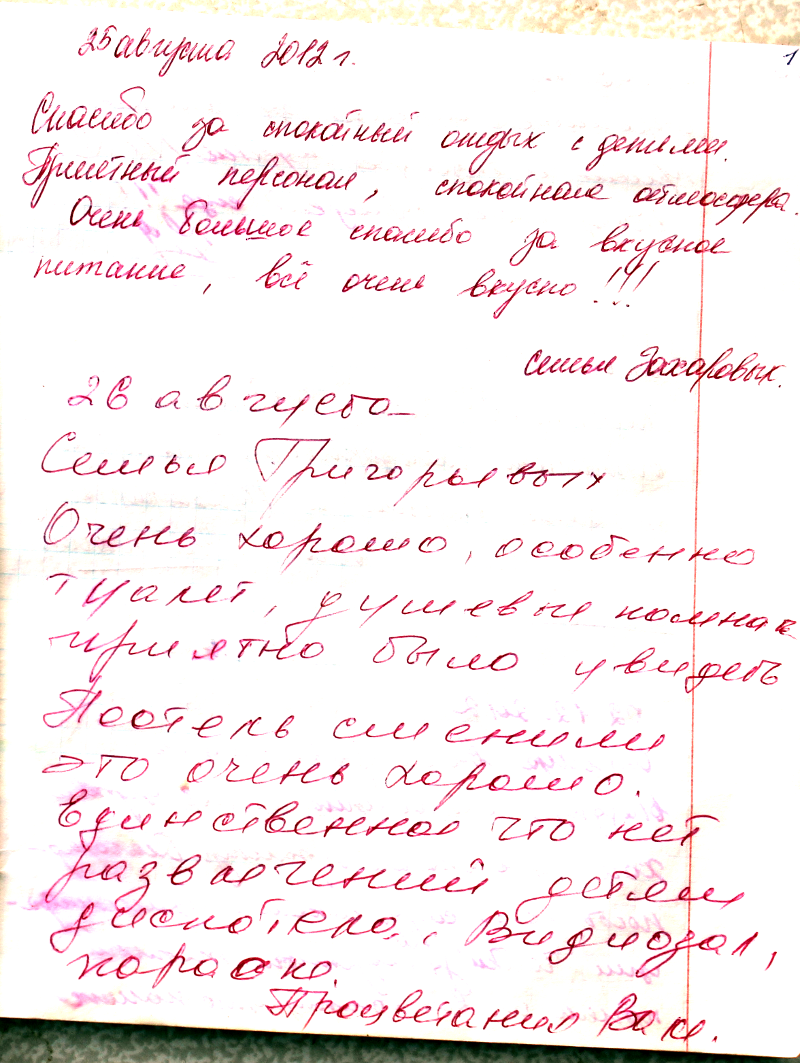 1
25 августа 2012 г.
Спасибо за спокойный отдых с детьми.
Приятный персонал, спокойная атмосфера.
Очень большое спасибо за вкусное
питание, всё очень вкусно!!!
семья Захаровых.
26 августа
Семья Григорьевых
Очень хорошо, особенно
туалет, душевые комнаты
приятно было увидеть
Постель сменили
это очень хорошо.
Единственное что нет
развлечений детям
дискотека, Видиозал,
караоке.
Процветания Вам.